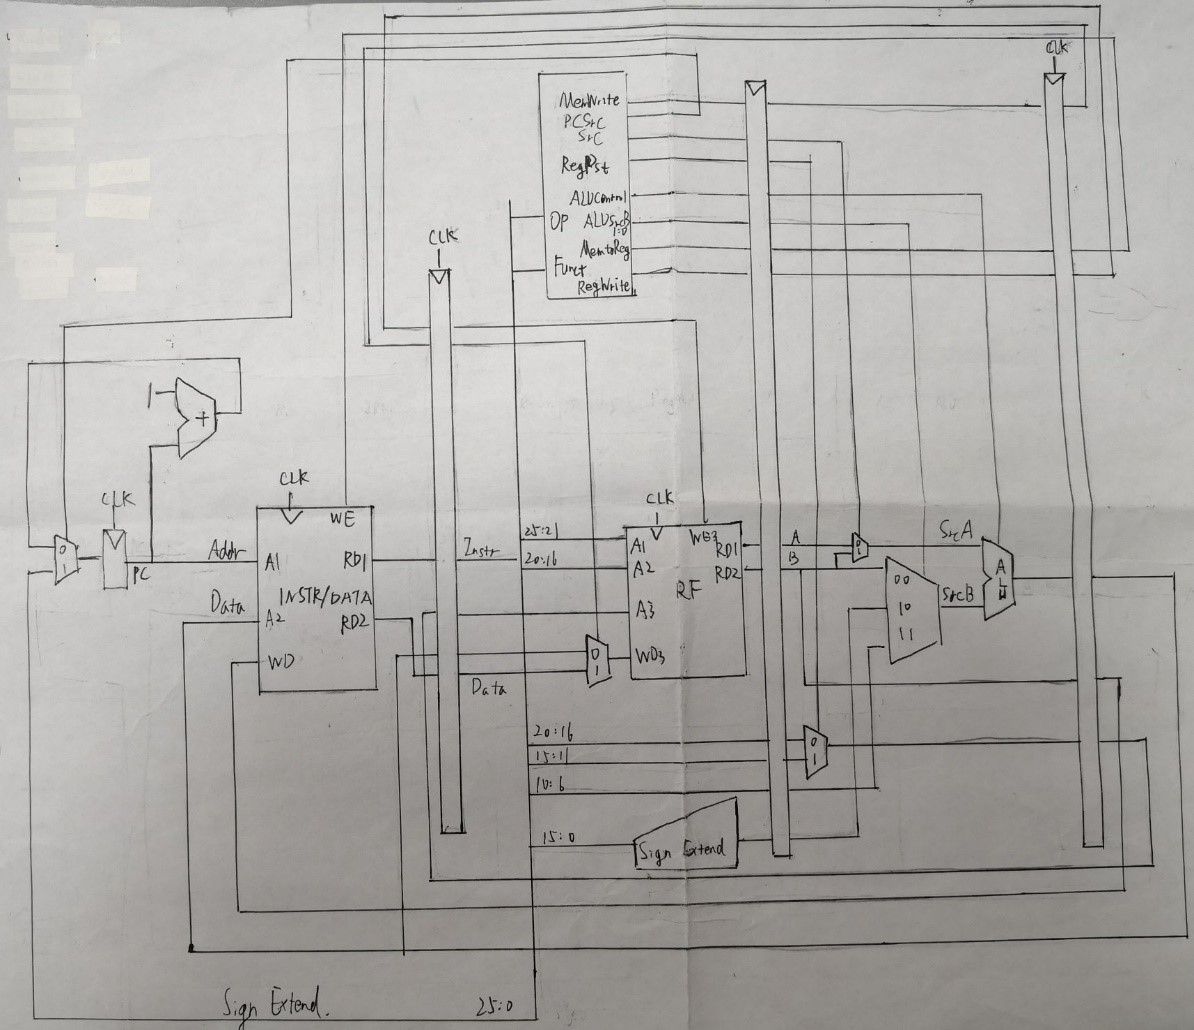 CLK
MemWrite
PCSrC
SrC
RegDst
ALUControl
OP ALUSrcB
1:0
MemtoReg
Funct
RegWrite
CLK
+
CLK
CLK
CLK
0
1
PC
Addr
Data
WE
A1
RD1
INSTR/DATA
A2
RD2
WD
Instr
Data
25:21
20:16
A1
WE3
RD1
A2
RD2
RF
A3
WD3
0
1
A
B
0
1
SrcA
00
10
11
SrcB
ALU
20:16
15:11
10:6
15:0
0
1
Sign Extend
Sign Extend.
25:0